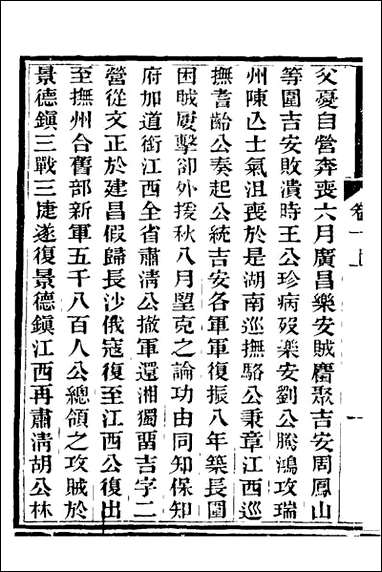 父憂自營奔喪六月廣昌樂安賊麕聚吉安周鳳山
等圍吉安敗潰時王公珍病歿樂安劉公騰鴻攻瑞
州陳亾士氣沮喪於是湖南巡撫駱公秉章江西巡
撫耆齡公奏起公統吉安各軍軍復振八年築長圍
困賊屢擊卻外援秋八月堅克之論功由同知保知
府加道銜江西全省肅淸公撤軍還湘獨畱吉字二
營從文正於建昌假歸長沙俄寇復至江西公復出
至撫州合舊部新軍五千八百人公總領之攻賊於
景德鎭三戰三捷遂復景德鎭江西再肅淸胡公林
卷一上